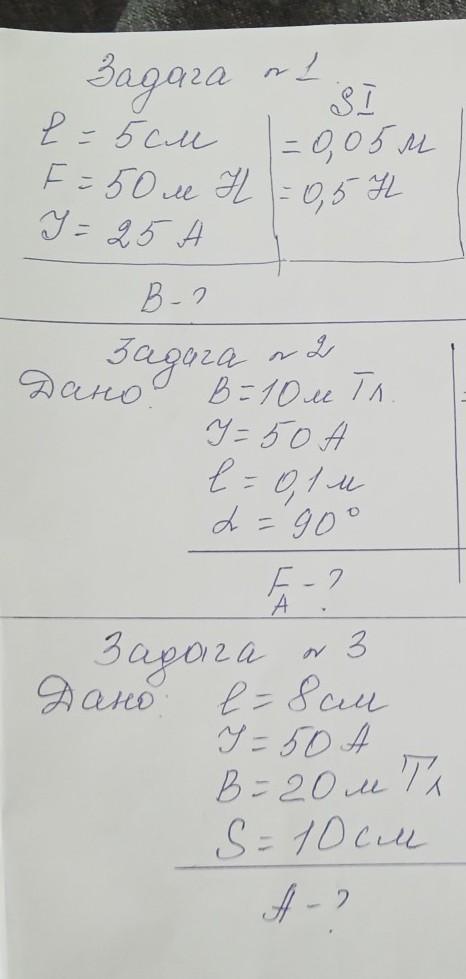 Задача №1
SI
l = 5см = 0,05 м
F = 50м Н = 0,5 Н
J = 25 А
B - ?
Задача №2
Дано: B = 10м Тл.
J = 50 А
l = 0,1 м
α = 90°
F - ?
А
Задача №3
Дано: l = 8см
J = 50 А
B = 20м Тл
S = 10см
А - ?